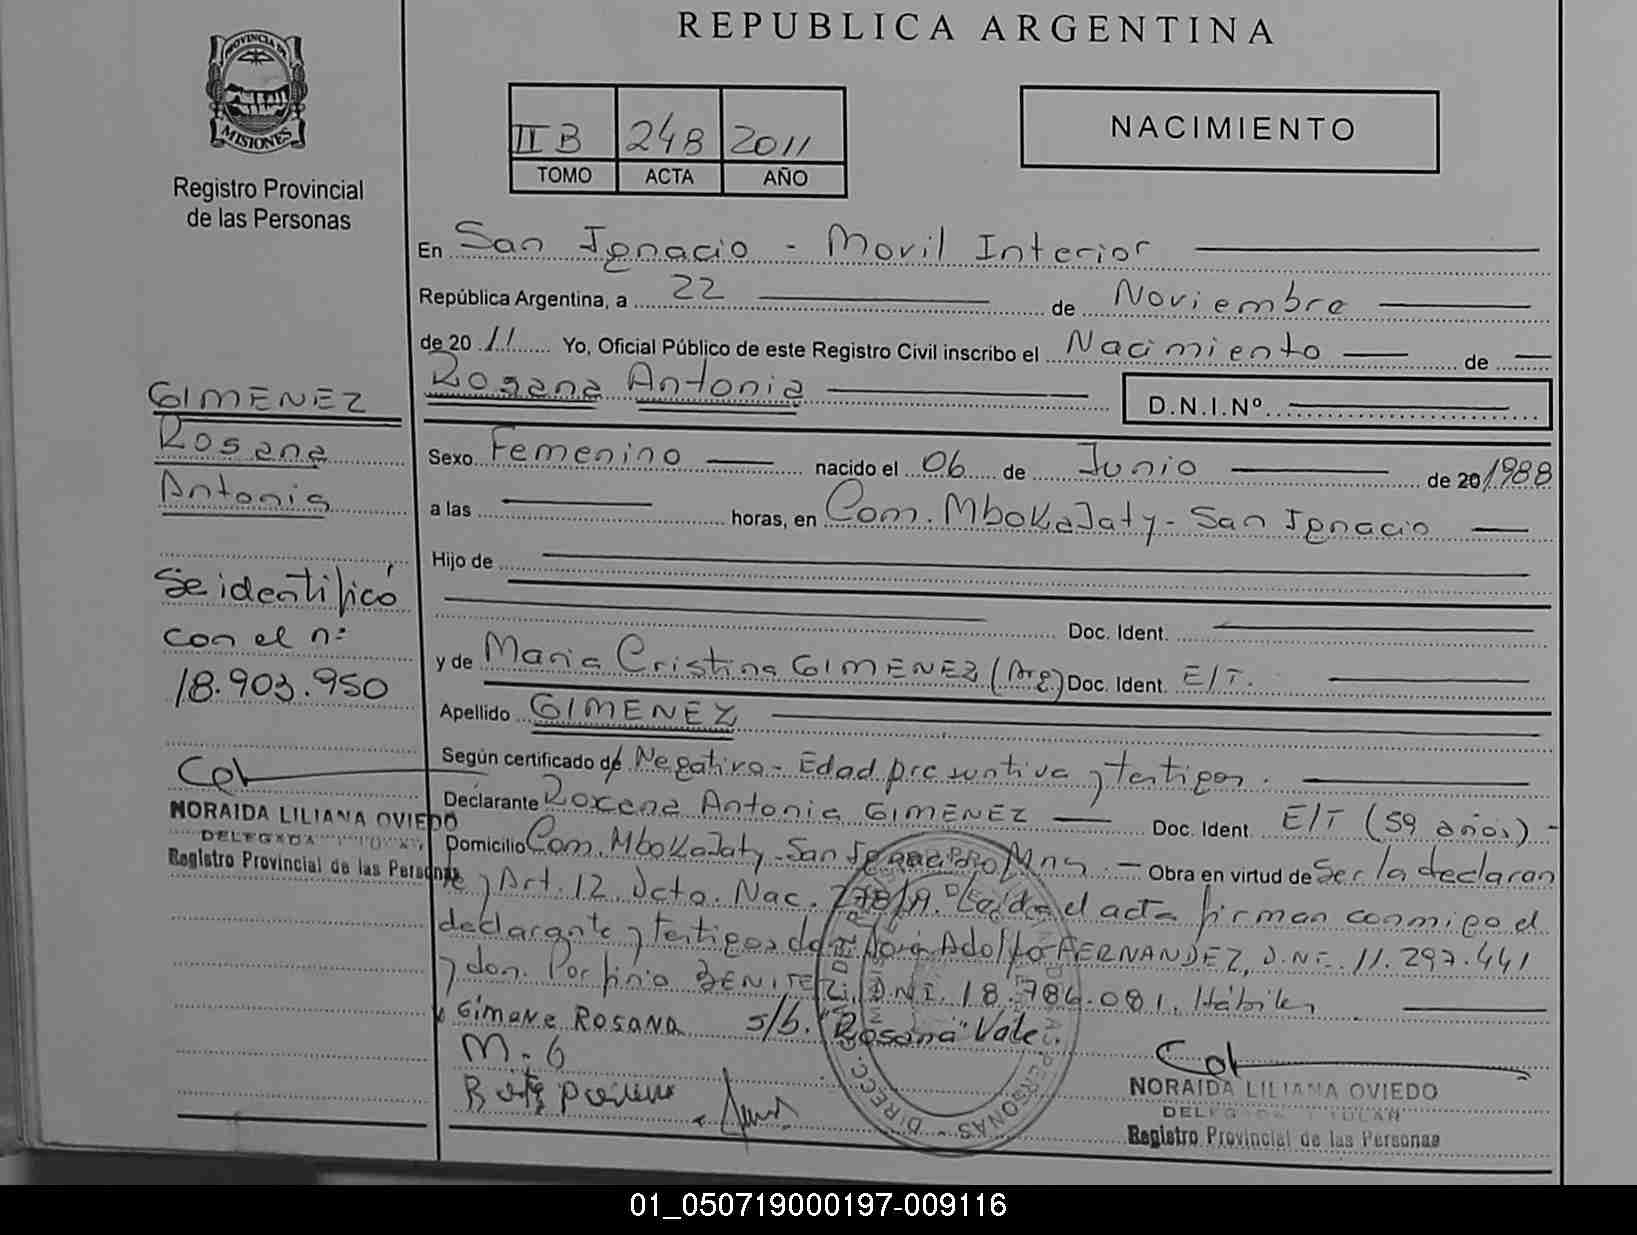 REPUBLICA ARGENTINA
PROVINCIA DE
MISIONES
Registro Provincial
de las Personas
II B 248 2011
TOMO ACTA AÑO
NACIMIENTO
En San Ignacio - Movil Interior
República Argentina, a 22 de Noviembre
de 20 11 Yo, Oficial Público de este Registro Civil inscribo el Nacimiento de
Rosana Antonia
D.N.I.Nº
Sexo Femenino nacido el 06 de Junio de 20 1988
a las horas, en Com. MboKaJaty - San Ignacio
Hijo de
Doc. Ident.
y de Maria Cristina GIMENEZ (Arg) Doc. Ident. E/T.
Apellido GIMENEZ
Según certificado de Negativo - Edad presuntiva y testigos.
Declarante Roxana Antonia GIMENEZ Doc. Ident. E/T (59 años) -
Domicilio Com. MboKaJaty - San Ignacio Mns - Obra en virtud de Ser la declaran
te y Art. 12 Dcto. Nac. Leida el acta firman conmigo el
declarante y testigos don José Adolfo FERNANDEZ, D.N.I. 11.297.441
y don Porfirio BENITEZ, D.N.I. 18.786.081, Hábiles
Gimene ROSANA s/b. "Rosana" Vale.
M. G
NORAIDA LILIANA OVIEDO
DELEGADA TITULAR
Registro Provincial de las Personas
GIMENEZ
Rosana
Antonia
Se identificó
con el nº
18.903.950
NORAIDA LILIANA OVIEDO
DELEGADA TITULAR
Registro Provincial de las Personas
01_050719000197-009116